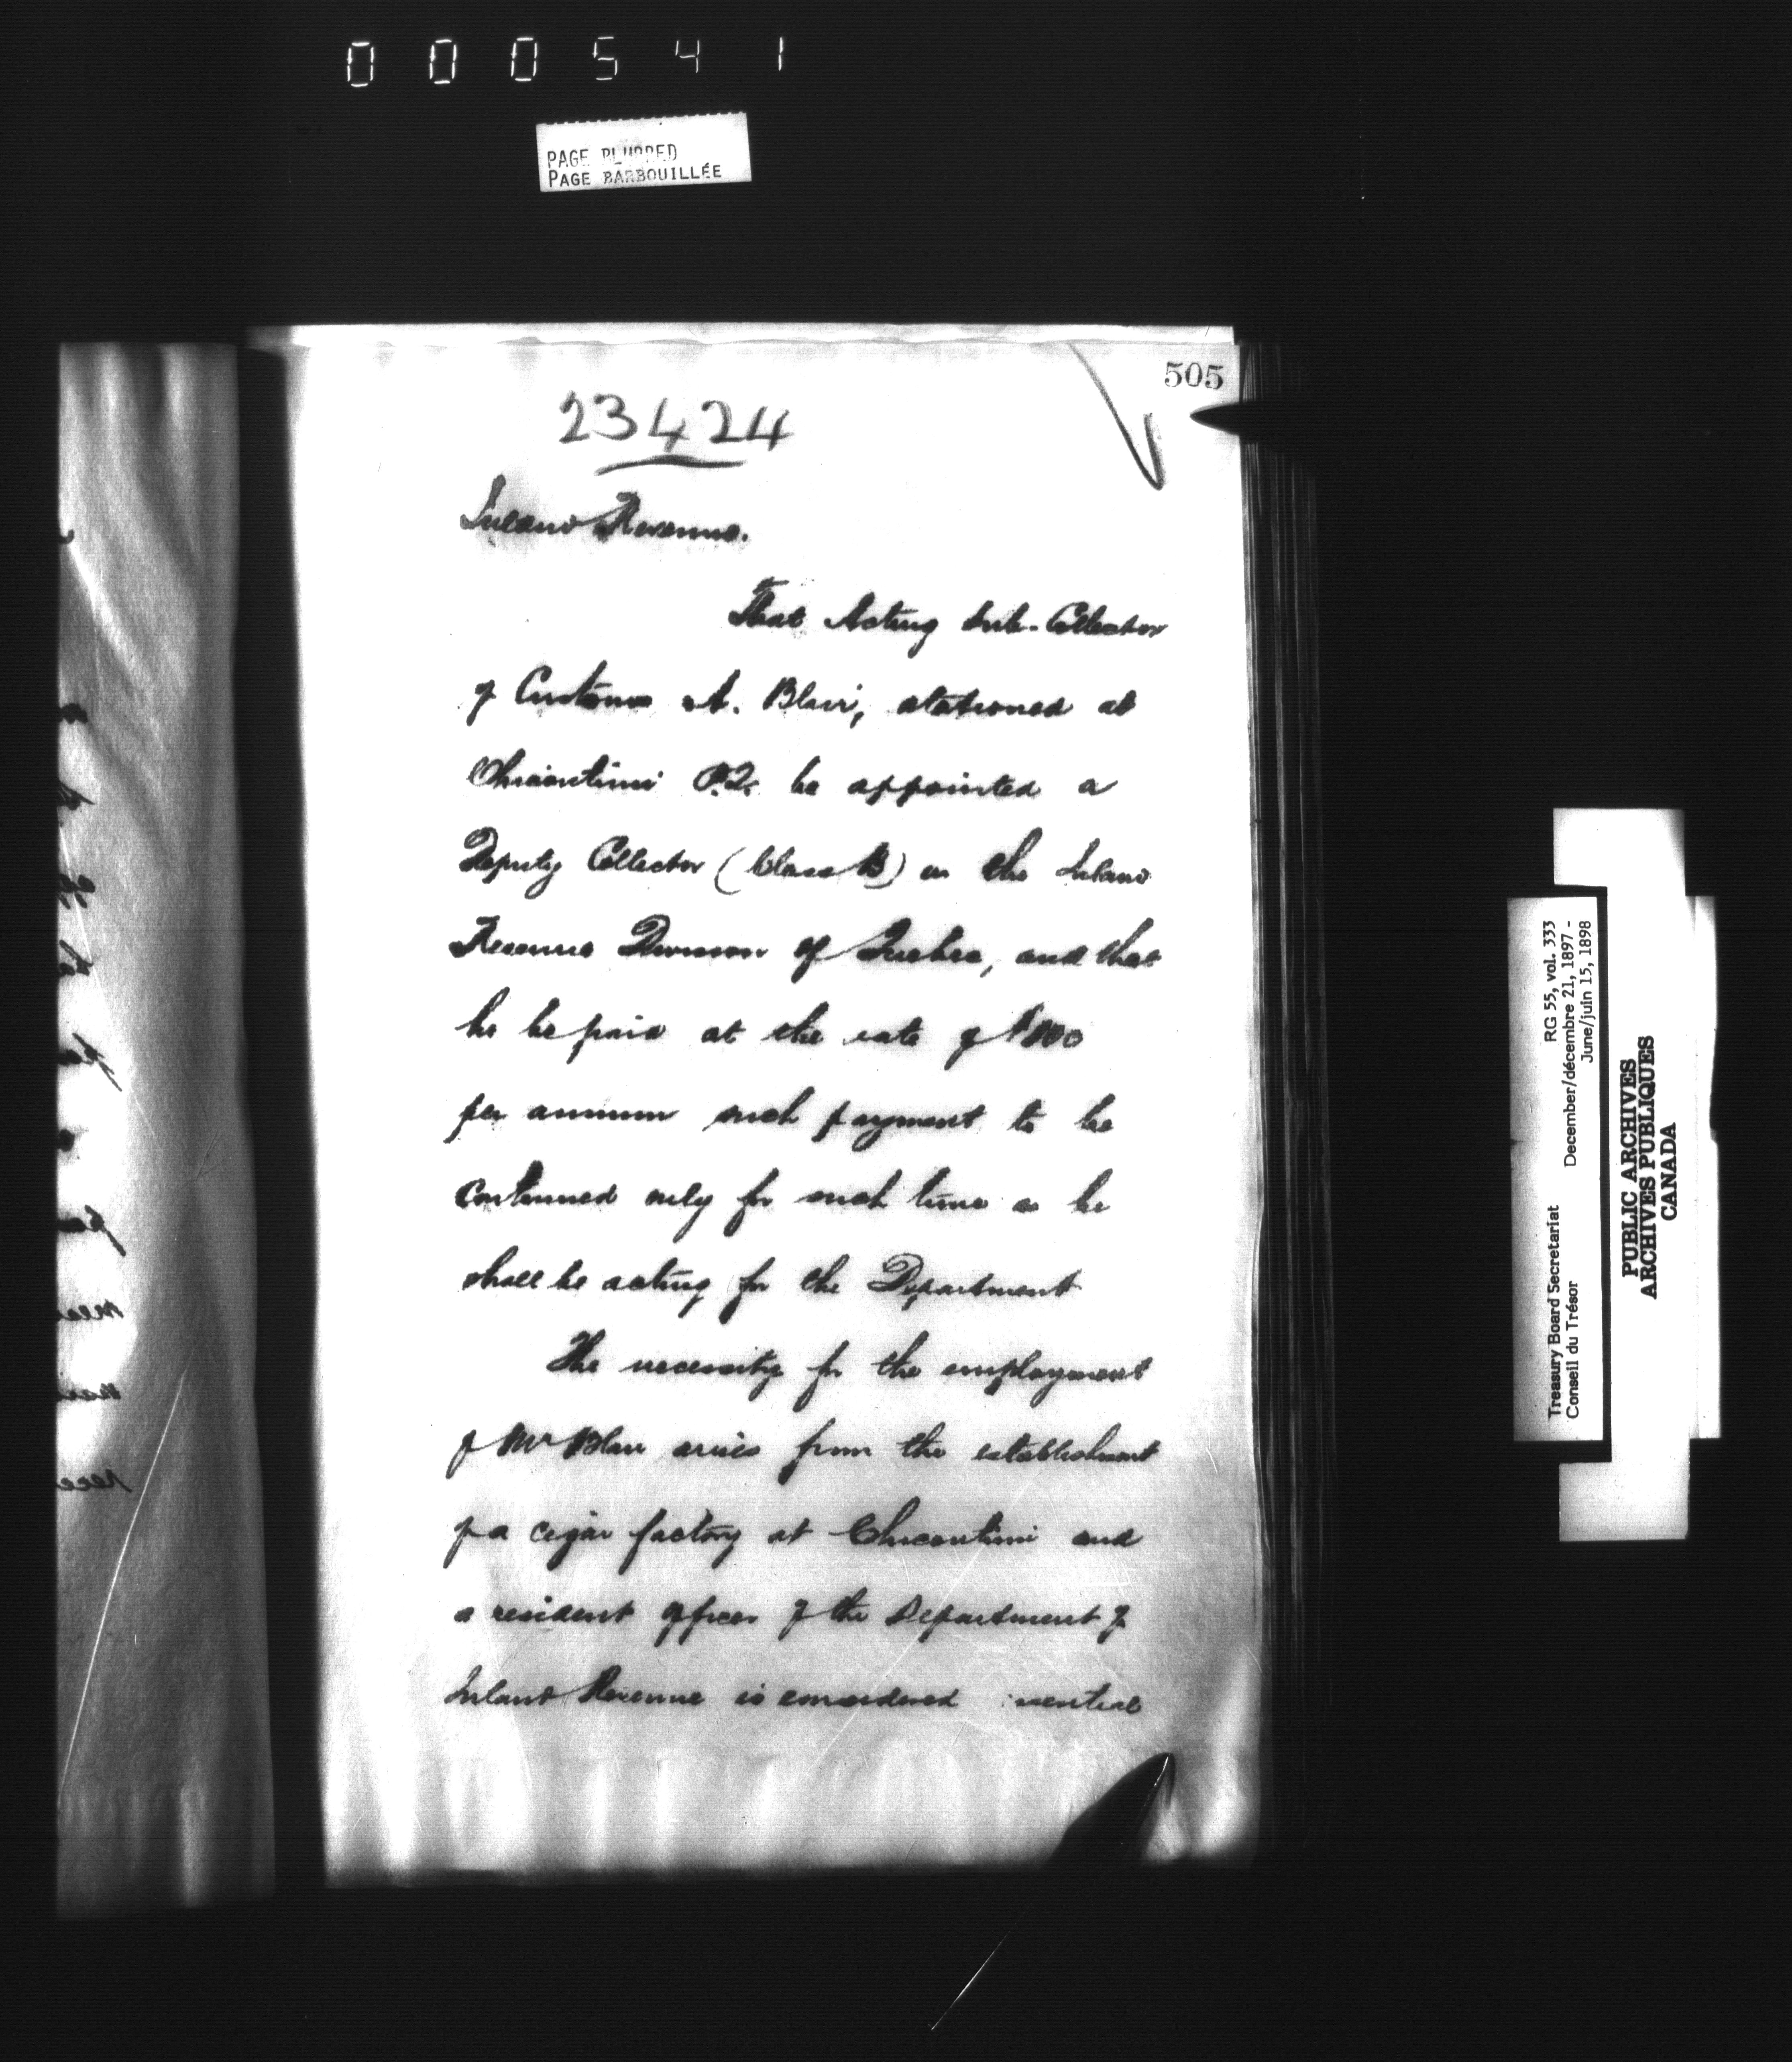 000541
PAGE BLURRED
PAGE BARBOUILLÉE
505
23424
Inland Revenue.
That Acting Sub-Collector
of Customs A. Blair, stationed at
Chicoutimi P.Q. be appointed a
Deputy Collector (Class B) in the Inland
Revenue Division of Quebec, and that
he be paid at the rate of
per annum such payment to be
continued only for such time as he
shall be acting for the Department
The necessity for the employment
of Mr Blair arises from the establishment
of a cigar factory at Chicoutimi and
a resident officer of the Department of
Inland Revenue is considered
Treasury Board Secretariat RG 55, vol. 333
Conseil du Trésor December/décembre 21, 1897 -
June/juin 15, 1898
PUBLIC ARCHIVES
ARCHIVES PUBLIQUES
CANADA